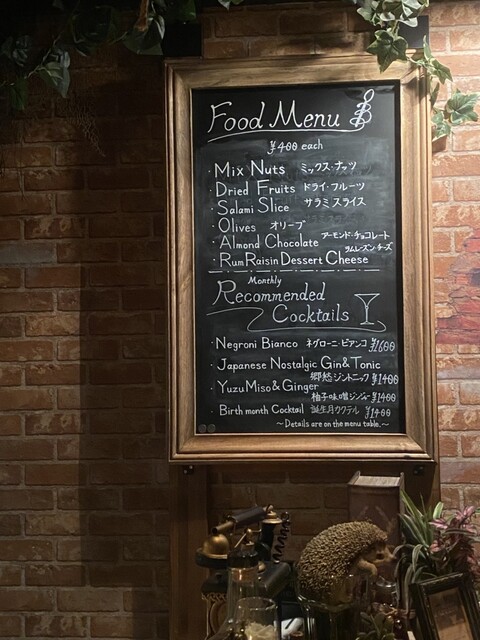 Food Menu
¥400 each
・Mix Nuts ミックス・ナッツ
・Dried Fruits ドライ・フルーツ
・Salami Slice サラミ スライス
・Olives オリーブ
・Almond Chocolate アーモンド・チョコレート
・Rum Raisin Dessert Cheese ラムレーズンチーズ
Monthly
Recommended
Cocktails
・Negroni Bianco ネグローニ・ビアンコ ¥1600
・Japanese Nostalgic Gin & Tonic
郷愁ジントニック ¥1400
・Yuzu Miso & Ginger
柚子味噌ジンジャー ¥1400
・Birth month Cocktail 誕生月カクテル ¥1400
~Details are on the menu table.~